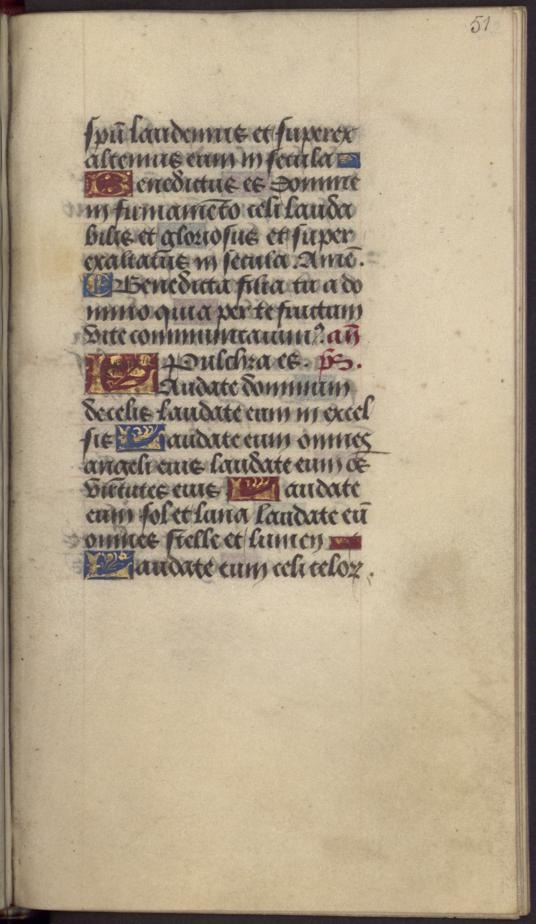 51
spũ laudemus et superex
altemus eum in secula
Benedictus es domine
in firmamẽto celi lauda
bilis et gloriosus et super
exaltatus in secula. Amẽ.
Benedicta filia tu a do
mino quia per te fructum
vite communicauimꝰ. añ
Pulchra es. ps.
Laudate dominum
de celis laudate eum in excel
sis Laudate eum omnes
angeli eius laudate eum oẽs
virtutes eius Laudate
eum sol et luna laudate eũ
omnes stelle et lumen
Laudate eum celi celoꝝ.